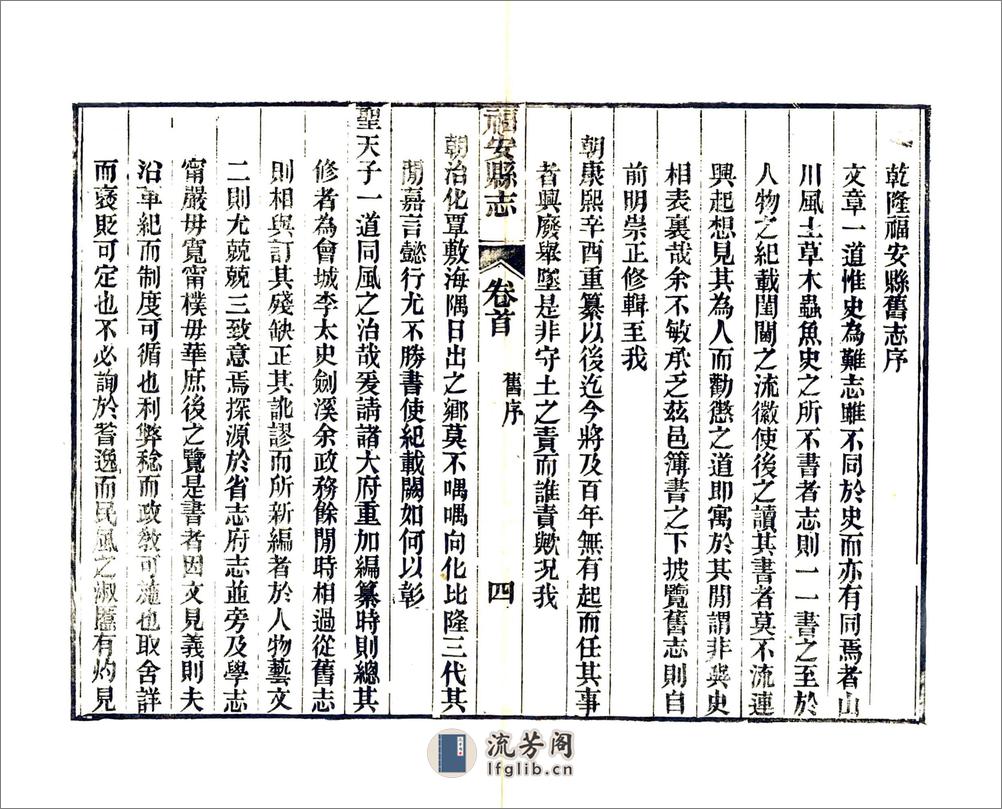 乾隆福安縣舊志序
文章一道惟史為難志雖不同於史而亦有同焉者山
川風土草木蟲魚史之所不書者志則一一書之至於
人物之紀載閨閫之流徽使後之讀其書者莫不流連
興起想見其為人而勸懲之道即寓於其閒謂非與史
相表裏哉余不敏承乏茲邑簿書之下披覽舊志則自
前明崇正修輯至我
朝康熙辛酉重纂以後迄今將及百年無有起而任其事
者興廢舉墜是非守土之責而誰責歟況我
福安縣志
卷首
舊序
四
朝治化覃敷海隅日出之鄉莫不喁喁向化比隆三代其
間嘉言懿行尤不勝書使紀載闕如何以彰
聖天子一道同風之治哉爰請諸大府重加編纂時則總其
修者為會城李太史劍溪余政務餘閒時相過從舊志
則相與訂其殘缺正其訛謬而所新編者於人物藝文
二則尤兢兢三致意焉探源於省志府志並旁及學志
甯嚴毋寬甯樸毋華庶後之覽是書者因文見義則夫
沿革紀而制度可循也利弊稔而政教可施也取舍詳
而褒貶可定也不必詢於耆逸而民風之淑慝有灼見
流芳阁
lfglib.cn